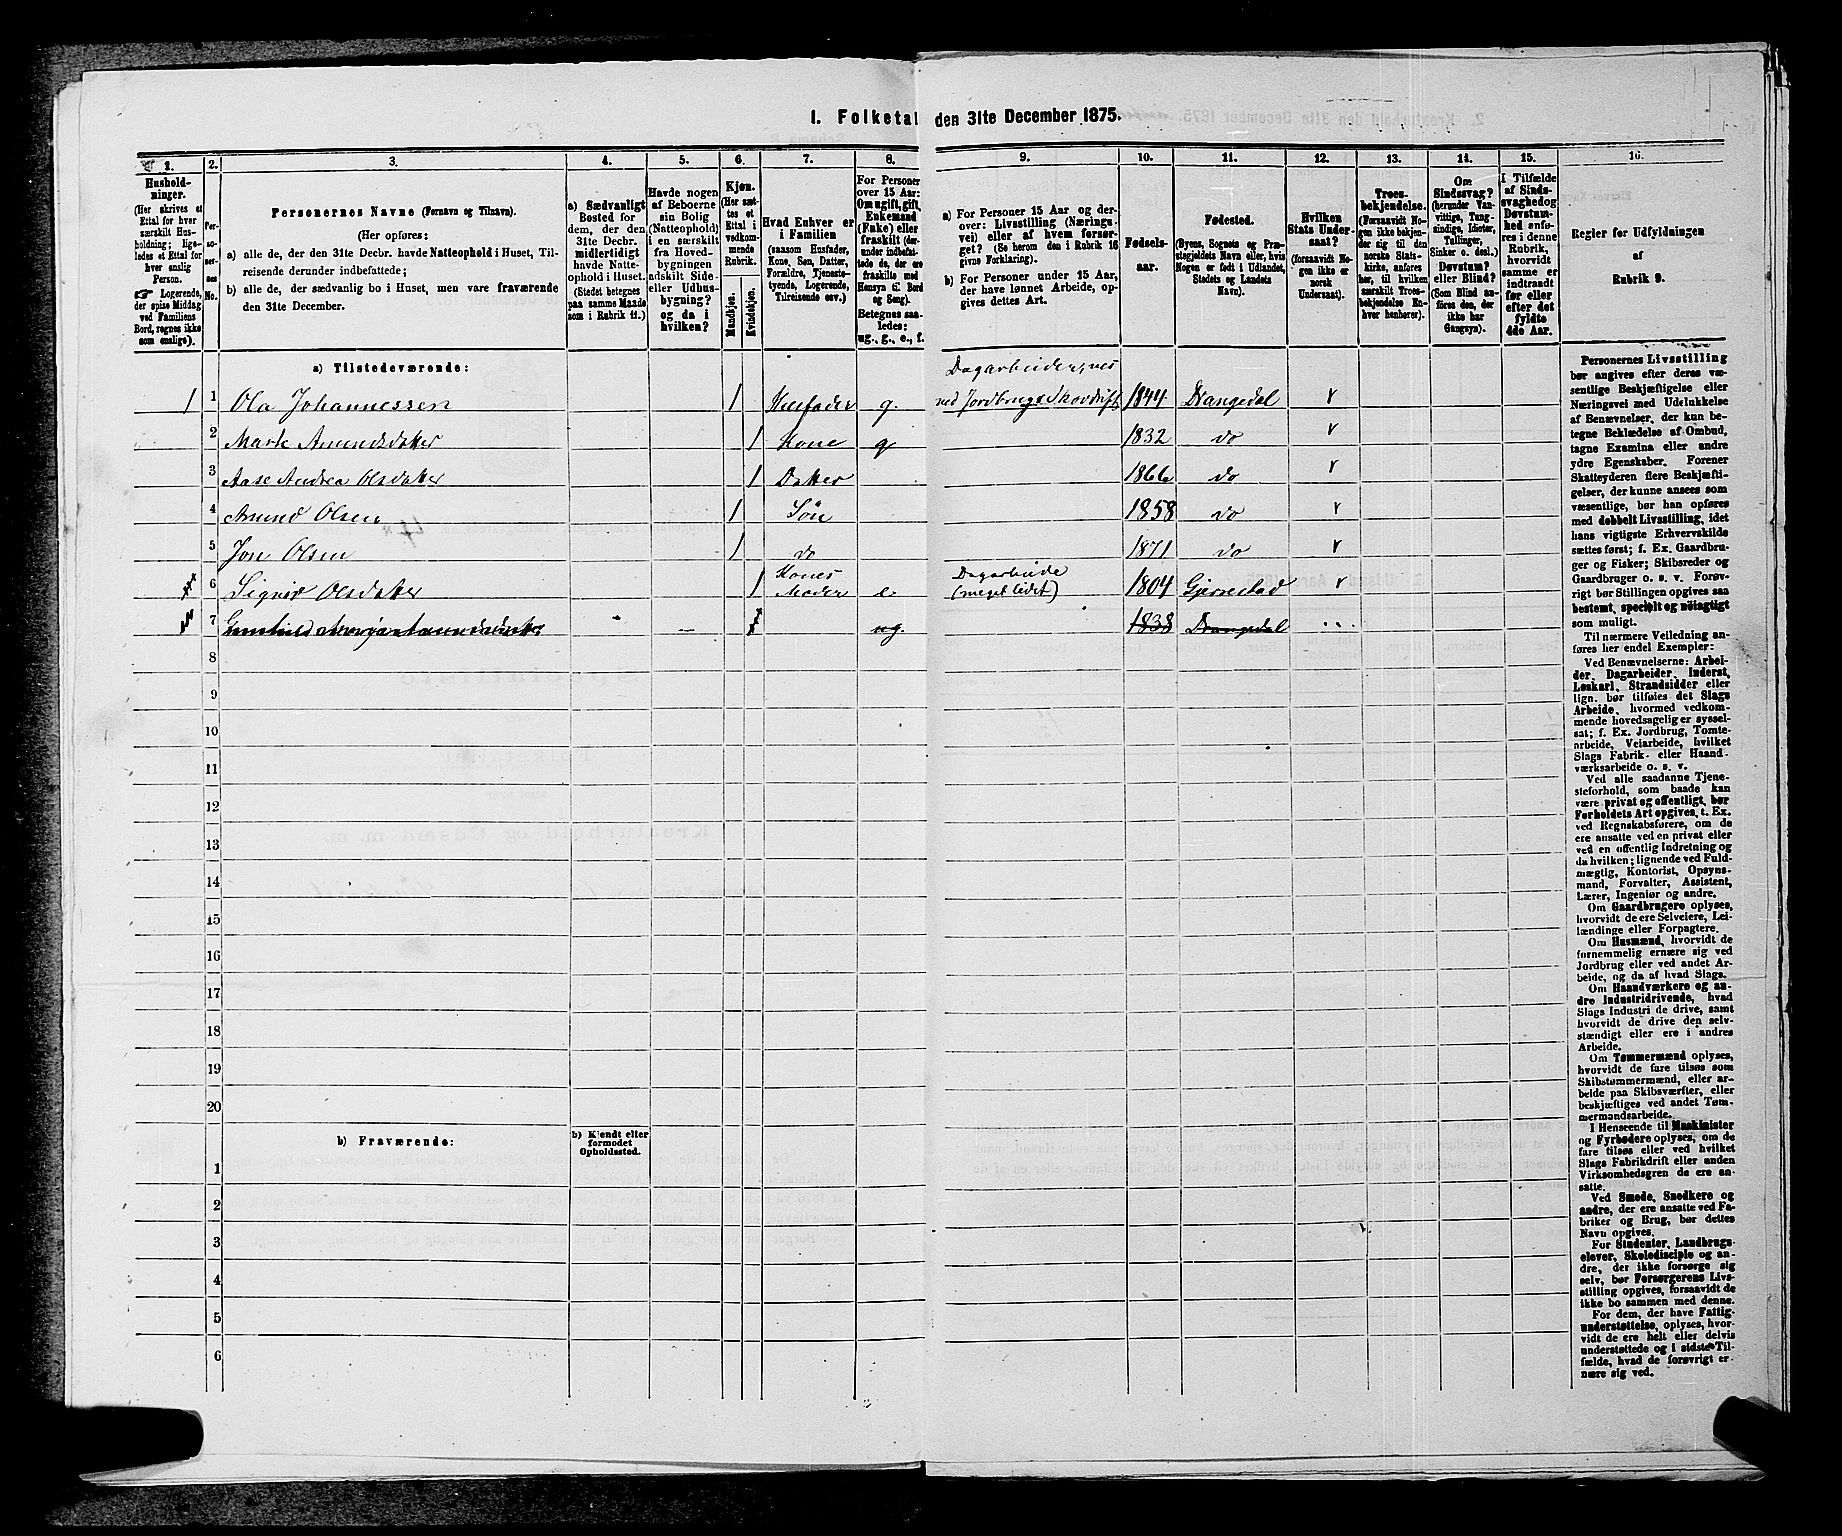 1. Folketal den 31te December 1875.
1.
2.
3.
4.
5.
6.
7.
8.
9.
10.
11.
12.
13.
14.
15.
16.
Hushold-
ninger.
(Her skrives et
Ettal for hver
særskilt Hus-
holdning; lige-
ledes et Ettal for
hver enslig
Person.
☞ Logerende,
der spise Middag
ved Familiens
Bord, regnes ikke
som enslige).
Per-
so-
ner-
nes
No.
Personernes Navne (Fornavn og Tilnavn).
(Her opføres:
a) alle de, der den 31te Decbr. havde Natteophold i Huset, Til-
reisende derunder indbefattede;
b) alle de, der sædvanlig bo i Huset, men vare fraværende
den 31te December.
a) Sædvanligt
Bosted for
dem, der den
31te Decbr.
midlertidigt
havde Natte-
ophold i Huset.
(Stedet betegnes
paa samme Maade
som i Rubrik 11.)
Havde nogen
af Beboerne
sin Bolig
(Natteophold)
i en særskilt
fra Hoved-
bygningen
adskilt Side-
eller Udhus-
bygning?
og da i
hvilken?
Kjøn.
(Her sæt-
tes et
Ettal i
vedkom-
mende
Rubrik.
Mandkjøn.
Kvindekjøn.
Hvad Enhver er
i Familien
(saasom Husfader,
Kone, Søn, Datter,
Forældre, Tjeneste-
tyende, Logerende,
Tilreisende osv.)
For Personer
over 15 Aar:
Om ugift, gift,
Enkemand
(Enke) eller
fraskilt (der-
under indbefat-
tede de, der ere
fraskilte med
Hensyn til Bord
og Seng).
Betegnes saa-
ledes:
ug., g., e., f.
a) For Personer 15 Aar og der-
over: Livsstilling (Nærings-
vei) eller af hvem forsør-
get? (Se herom den i Rubrik 16
givne Forklaring).
b) For Personer under 15 Aar,
der have lønnet Arbeide, op-
gives dettes Art.
Fødsels-
aar.
Fødested.
(Byens, Sognets og Præ-
stegjeldets Navn eller, hvis
Nogen er født i Udlandet,
Stedets og Landets
Navn).
Hvilken
Stats Under-
saat?
(forsaavidt No-
gen ikke er
norsk
Undersaat).
Troes-
bekjendelse.
(Forsaavidt No-
gen ikke bekjen-
der sig til den
norske Stats-
kirke, anføres
her, til hvilken
særskilt Troes-
bekjendelse En-
hver henhører).
Om
Sindssvag?
(herunder Van-
vittige, Tung-
sindige, Idioter,
Tullinger,
Sinker o. desl.).
Døvstum?
eller Blind?
(Som Blind an-
føres den, der
ikke har
Gangsyn).
I Tilfælde
af Sinds-
svaghed og
Døvstum-
hed anføres
i denne
Rubrik,
hvorvidt
samme er
indtraadt
før eller
efter det
fyldte
4de Aar.
Regler for Udfyldningen
af
Rubrik 9.
a) Tilstedeværende:
Dagarbeider,
1 1 Ola Johannessen 1 Husfader g. ved Jordbrug & Skovdrift 1844 Drangedal
2 Marte Amundsdatter 1 Kone g 1832 do
3 Aase Andrea Olsdatter 1 Datter 1866 do
4 Amund Olsen 1 Søn 1858 do
5 Jon Olsen 1 do 1871 do
Kones Dagarbeide
6 Signid Olsdatter 1 Moder e (meget lidet) 1804 Gjerrestad
7 ug. 1838 Drangedal
8
9
10
11
12
13
14
15
16
17
18
19
20
b) Fraværende:
b) Kjendt eller
formodet
Opholdssted.
1
2
3
4
5
6
Personernes Livsstilling
bør angives efter deres væ-
sentlige Beskjæftigelse eller
Næringsvei med Udelukkelse
af Benævnelser, der kun be-
tegne Beklædelse af Ombud,
tagne Examina eller andre
ydre Egenskaber. Forener
Skatteyderen flere Beskjæfti-
gelser, der kunne ansees som
væsentlige, bør han opføres
med dobbelt Livsstilling, idet
hans vigtigste Erhvervskilde
sættes først; f. Ex. Gaardbru-
ger og Fisker; Skibsreder og
Gaardbruger o. s. v. Forøv-
rigt bør Stillingen opgives saa
bestemt, specielt og nøiagtigt
som muligt.
Til nærmere Veiledning an-
føres her endel Exempler:
Ved Benævnelserne: Arbei-
der, Dagarbeider, Inderst,
Løskarl, Strandsidder eller
lign. bør tilføies det Slags
Arbeide, hvormed vedkom-
mende hovedsagelig er syssel-
sat; f. Ex. Jordbrug, Tomte-
arbeide, Veiarbeide, hvilket
Slags Fabrik- eller Haand-
værksarbeide o. s. v.
Ved alle saadanne Tjene-
steforhold, som baade kan
være privat og offentligt, bør
Forholdets Art opgives, t. Ex.
ved Regnskabsførere, om de
ere ansatte ved en privat eller
ved en offentlig Indretning og
da hvilken; lignende ved Fuld-
mægtig, Kontorist, Opsyns-
mand, Forvalter, Assistent,
Lærer, Ingeniør og andre.
Om Gaardbrugere oplyses,
hvorvidt de ere Selveiere, Lei-
lændinge eller Forpagtere.
Om Husmænd, hvorvidt de
fornemmelig ernære sig ved
Jordbrug eller ved andet Ar-
beide, og da af hvad Slags.
Om Haandværkere og an-
dre Industridrivende, hvad
Slags Industri de drive, samt
hvorvidt de drive den selv-
stændigt eller ere i andres
Arbeide.
Om Tømmermænd oplyses,
hvorvidt de fare tilsøs som
Skibstømmermænd, eller ar-
beide paa Skibsværfter, eller
beskjæftiges ved andet Tøm-
mermandsarbeide.
I Henseende til Maskinister
og Fyrbødere oplyses, om de
fare tilsøs eller ved hvilket
Slags Fabrikdrift eller anden
Virksomhedsgren de ere an-
satte.
Ved Smede, Snedkere og
andre, der ere ansatte ved Fa-
briker og Brug, bør dettes
Navn opgives.
For Studenter, Landbrugs-
elever, Skoledisciple og an-
dre, der ikke forsørge sig
selv, bør Forsørgerens Livs-
stilling opgives, forsaavidt de
ikke bo sammen med denne.
For dem, der have Fattig-
understøttelse, oplyses, hvor-
vidt de ere helt eller delvis
understøttede og i sidste Til-
fælde, hvad de forøvrigt er-
nære sig ved.